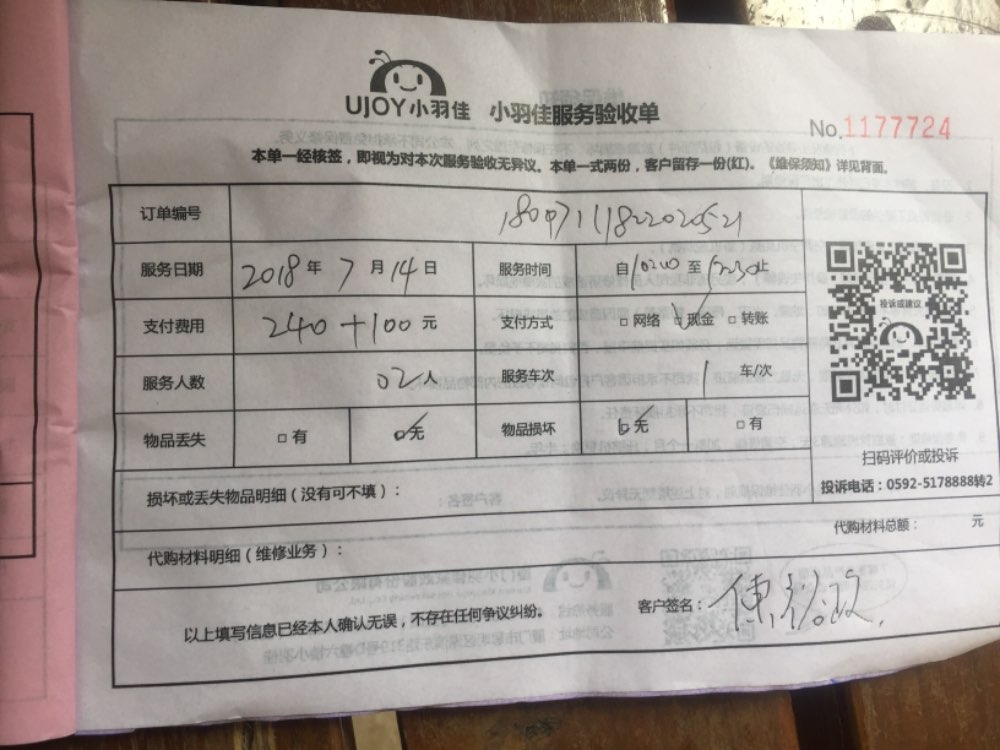 UJOY小羽佳 小羽佳服务验收单
No.1177724
本单一经核签，即视为对本次服务验收无异议。本单一式两份，客户留存一份(红)。《维保须知》详见背面。
订单编号 1807111822020521
服务日期 2018年7月14日 服务时间 自10200至15230止
支付费用 240+100元 支付方式 □网络 □现金 □转账
服务人数 02人 服务车次 1车/次
物品丢失 □有 □无 物品损坏 □无 □有
投诉或建议
扫码评价或投诉
投诉电话：0592-5178888转2
损坏或丢失物品明细（没有可不填）：
代购材料明细（维修业务）： 代购材料总额： 元
以上填写信息已经本人确认无误，不存在任何争议纠纷。 客户签名：